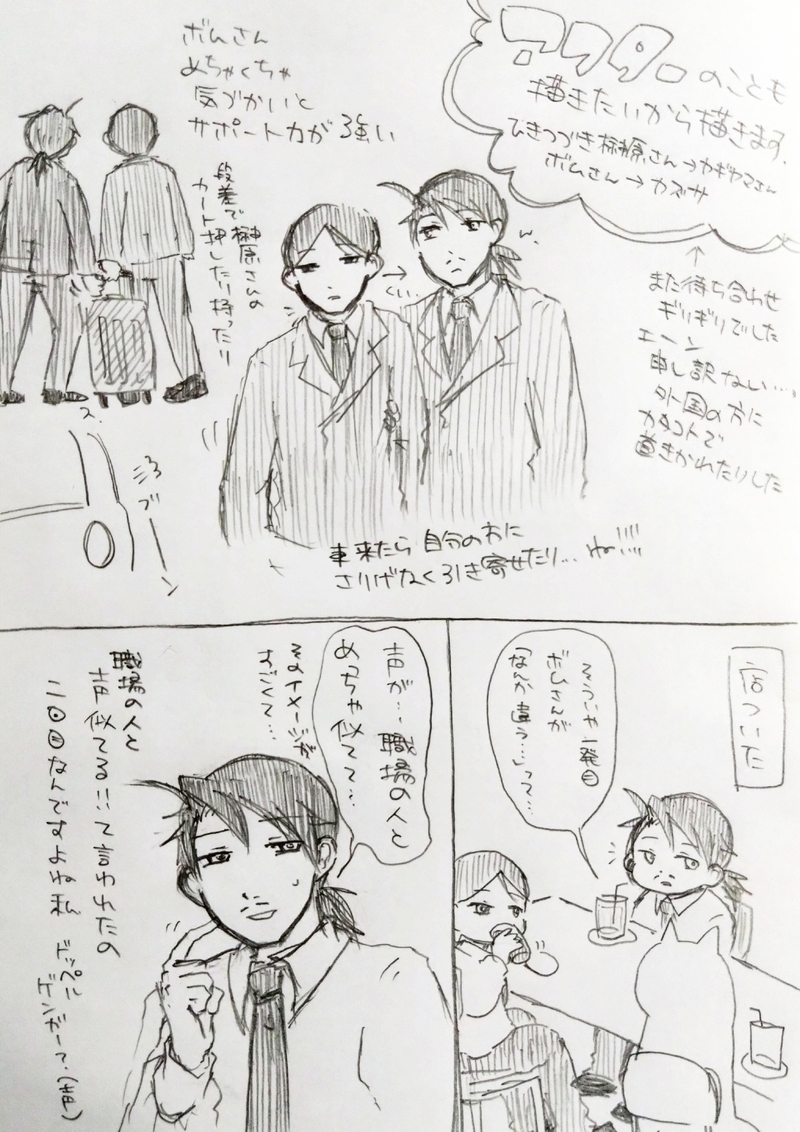 アフターのことも
描きたいから描きます。
ひきつづき榊原さん→カギヤマさん
ボムさん→カズサ
↑
また待ち合わせ
ギリギリでした
エーン
申し訳ない…
外国の方に
カタコトで
道きかれたりした
ボムさん
めちゃくちゃ
気づかいと
サポート力が強い
段差で榊原さんの
カート押したり持ったり
→
ぐい
ス
ブーン
車来たら自分の方に
さりげなく引き寄せたり…ね!!!!
店ついた
そういや一発目
ボムさんが
なんか違う…って…
声が…職場の人と
めっちゃ似てて…
そのイメージが
すごくて…
職場の人と
声似てる!!て言われたの
二回目なんですよね私
ドッペル
ゲンガー?(声)